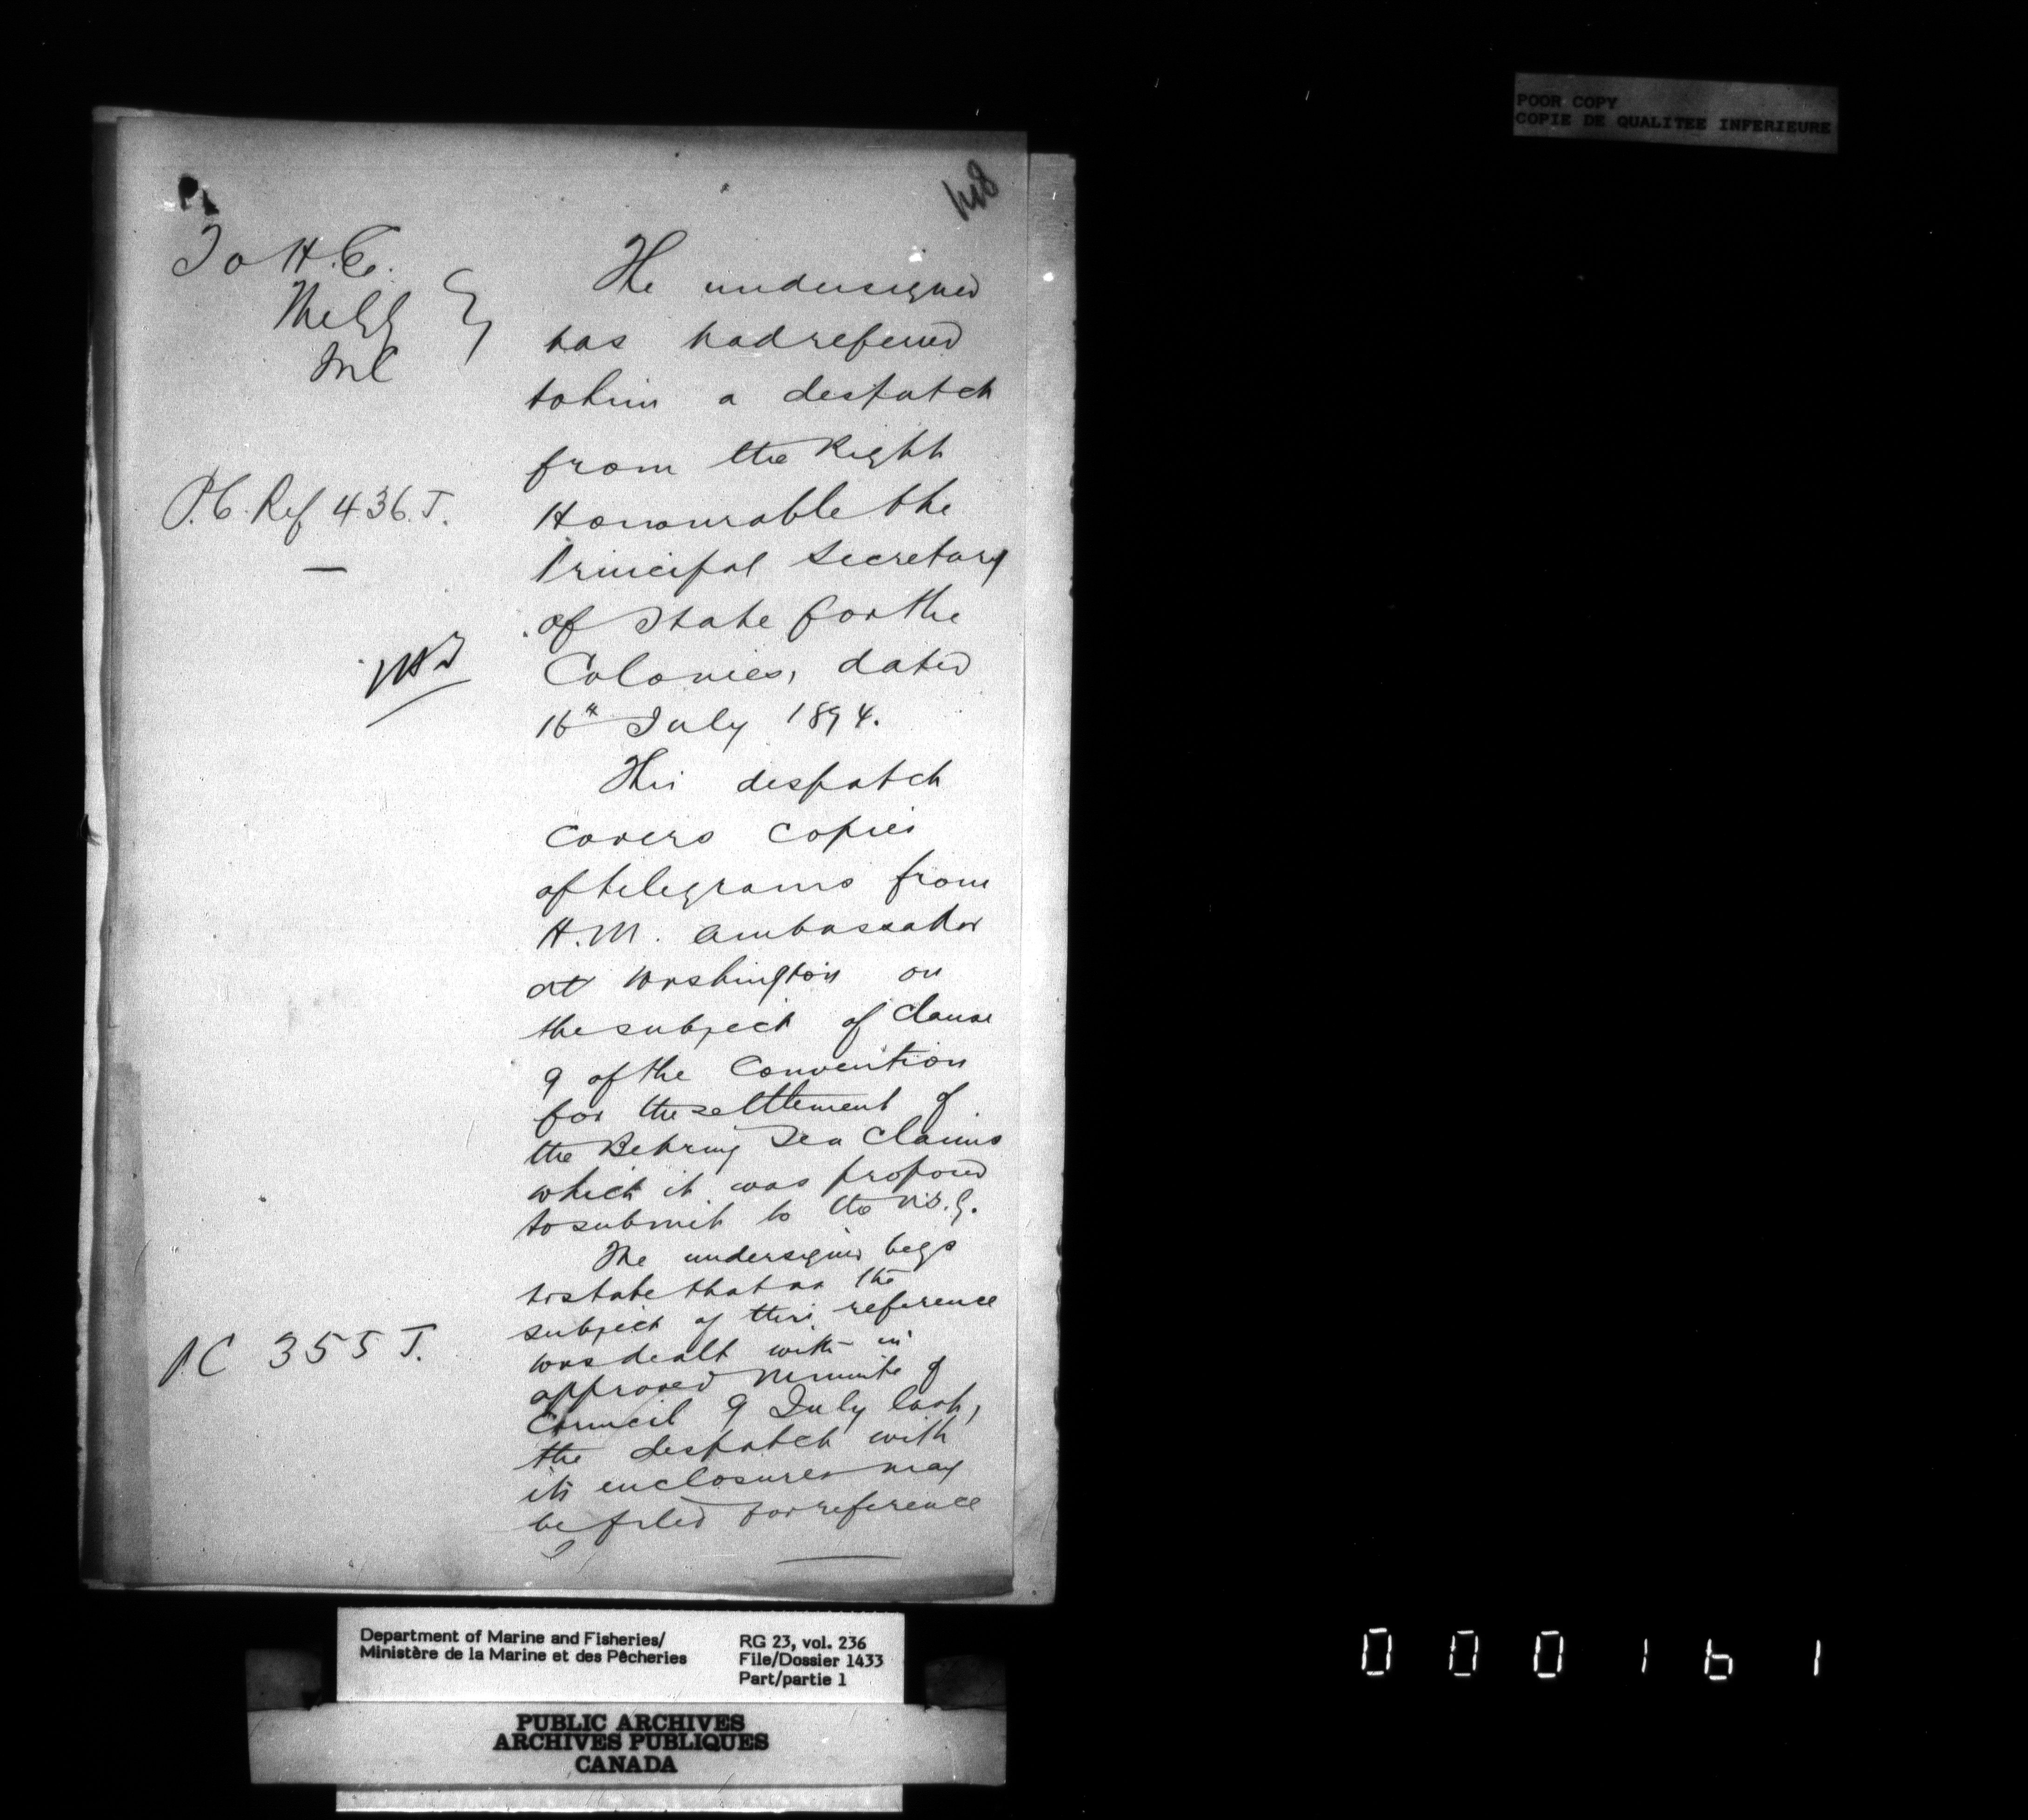 POOR COPY
COPIE DE QUALITEE INFERIEURE
148
To H.E.
The G G
in C
P.C. Ref 436. J.
The undersigned
has had referred
to him a despatch
from the Right
Honourable the
Principal Secretary
of State for the
Colonies, dated
16th July 1894.
This despatch
covers copies
of telegrams from
H.M. Ambassador
at Washington on
the subject of Clause
9 of the Convention
for the settlement of
the Behring Sea Claims
which it was proposed
to submit to the U.S.G.
The undersigned begs
to state that as the
subject of this reference
PC 355 J.
was dealt with in
approved Minute of
Council 9 July last,
the despatch with
its enclosures may
be filed for reference
Department of Marine and Fisheries/
Ministère de la Marine et des Pêcheries
RG 23, vol. 236
File/Dossier 1433
Part/partie 1
PUBLIC ARCHIVES
ARCHIVES PUBLIQUES
CANADA
000161